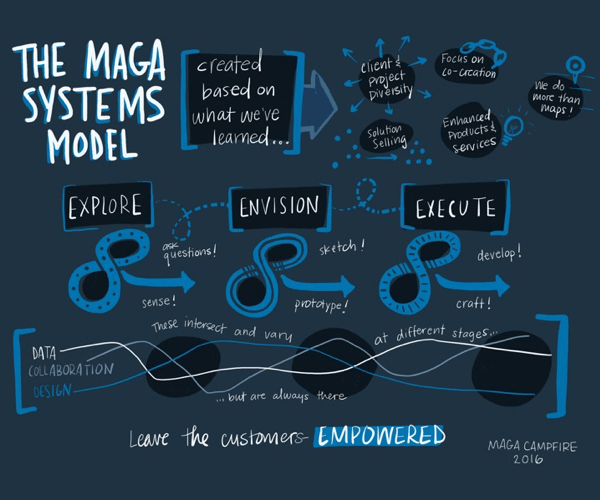 THE MAGA
SYSTEMS
MODEL
created
based on
what we've
learned...
Client &
Project
Diversity
Focus on
co-creation
We do
more than
maps!
Solution
Selling
Enhanced
Products &
Services
EXPLORE
ENVISION
EXECUTE
ask
questions!
sense!
sketch!
prototype!
develop!
craft!
These intersect and vary
at different stages...
DATA
COLLABORATION
DESIGN
...but are always there
Leave the customers EMPOWERED
MAGA CAMPFIRE
2016